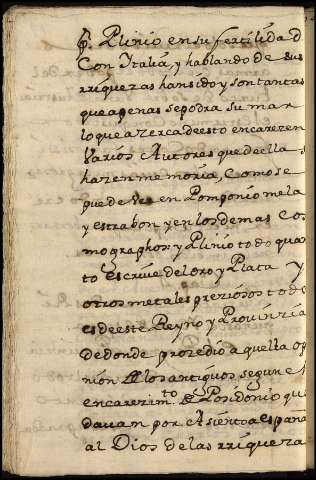 G. Plinio en su fertilidad
Con Italia, y hablando de sus
rriquezas han sido y son tantas
que apenas se podra sumar
lo que azerca de esto encarezen
Varios Autores que de ella
hazen memoria, Como se
puede Ver en Pomponio mela
y estrabon y en los demas Cos
mographos y Plinio todo quan
to escriue del oro y Plata y
otros metales preziosos todo
es de este Reyno y Prouinzia
de donde prozedio aquella opi
nion de los antiguos segun el
encarezim.to de Posidonio que
dauan por Asiento a españa
al Dios de las rriqueza